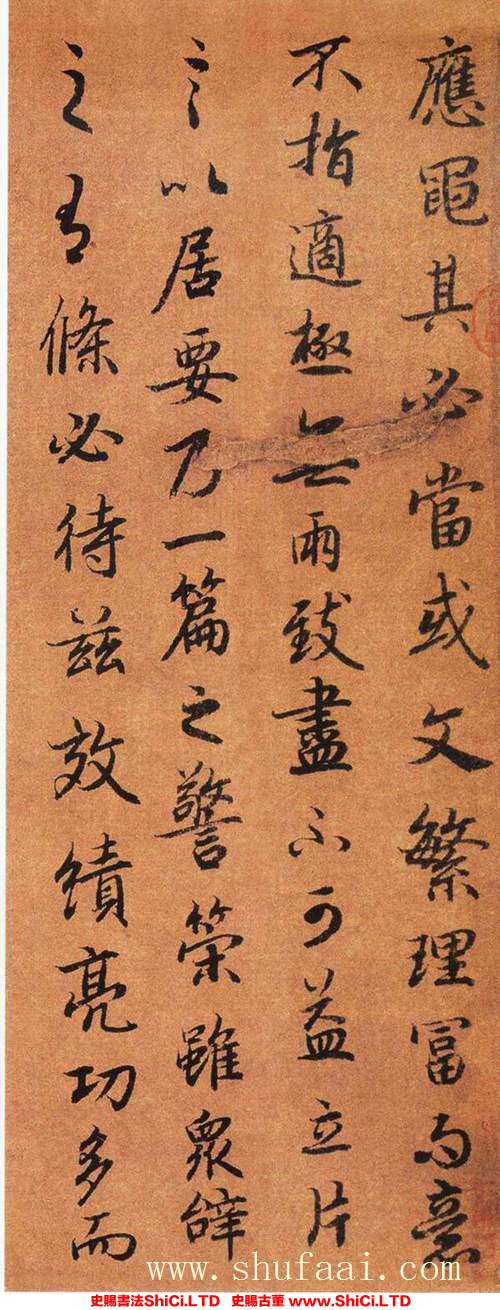 應黽其必當或文繁理冨而意
不指適極無兩致盡不可益立片
言以居要乃一篇之警策雖衆辞
之有條必待茲效績亮功多而
www.shufaai.com
史賜書法ShiCi.LTD 史賜古董 www.ShiCi.LTD